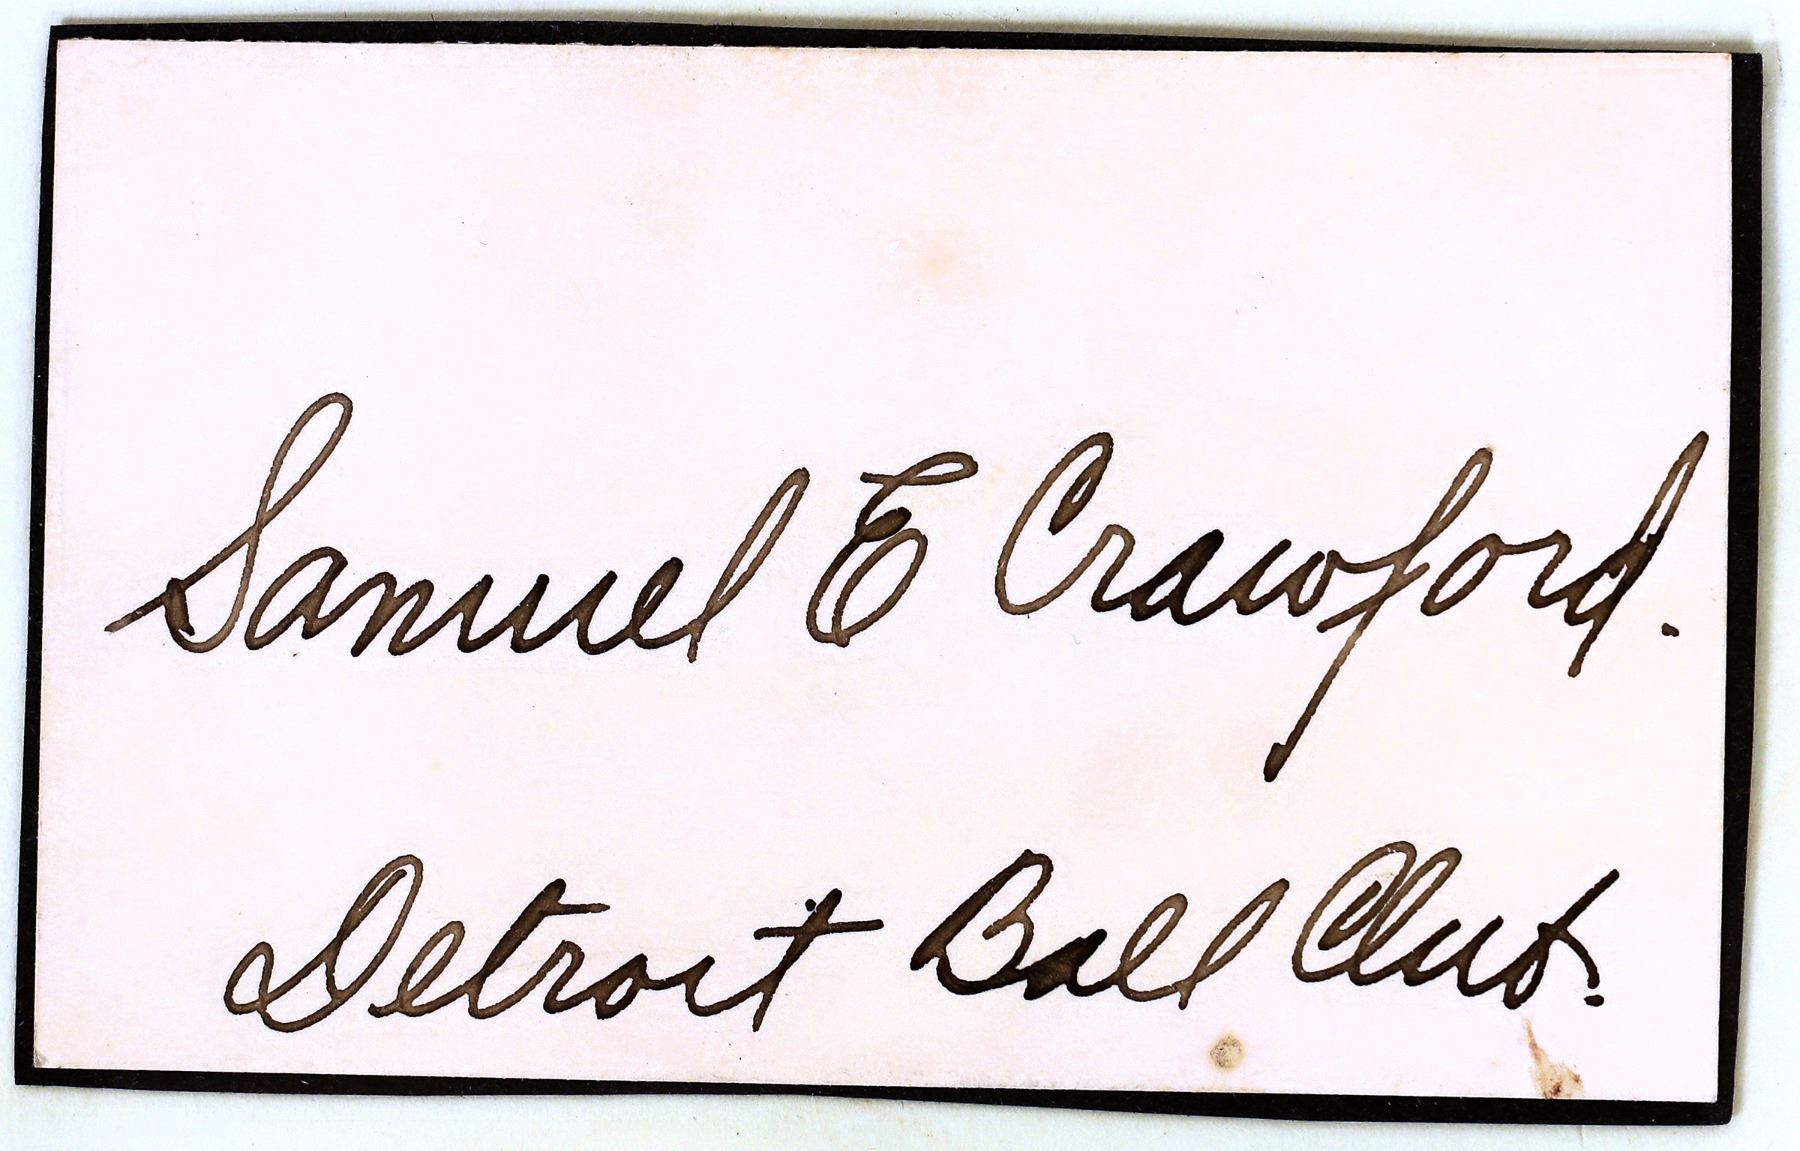 Samuel E Crawford.
Detroit Ball Club.